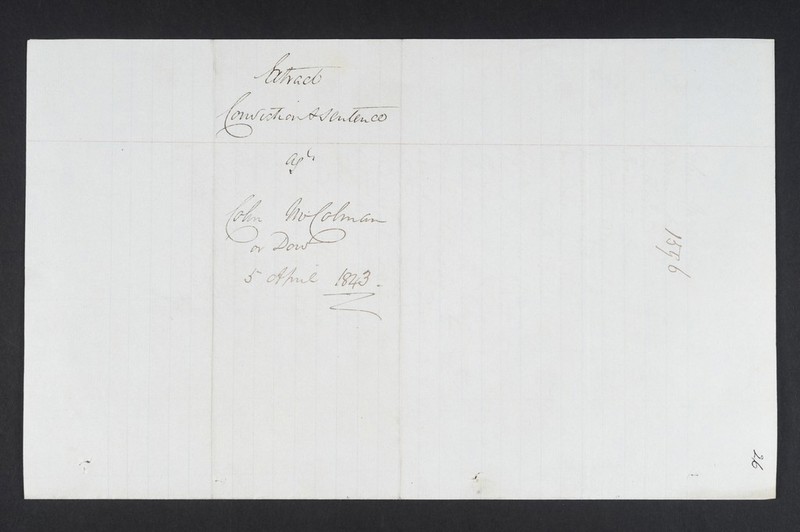 Extract
Conviction & Sentence
agt
Colin McColman
or Dow
5 April 1843.
26